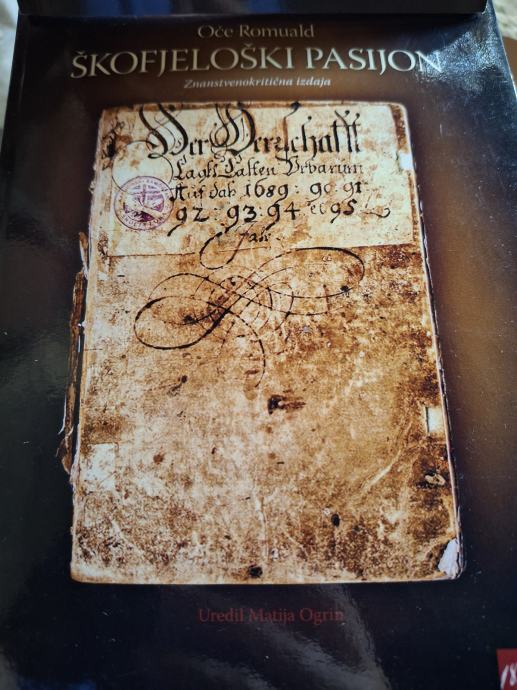 Oče Romuald
ŠKOFJELOŠKI PASIJON
Znanstvenokritična izdaja
Der Herrschafft
Lagkh Casten Vrbarium
Auf daß 1689: 90: 91:
92: 93: 94 et 95
Jahr
Uredil Matija Ogrin